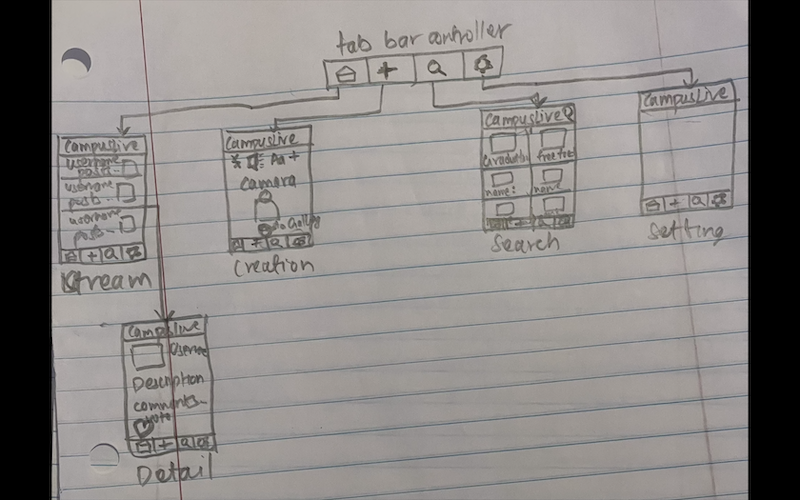 tab bar controller
CampusLive
username
post...
username
post...
username
post...
Stream
CampusLive
Aa +
camera
Creation
CampusLive
name:
name
Search
CampusLive
Setting
CampusLive
Username
Description
comments..
Detail